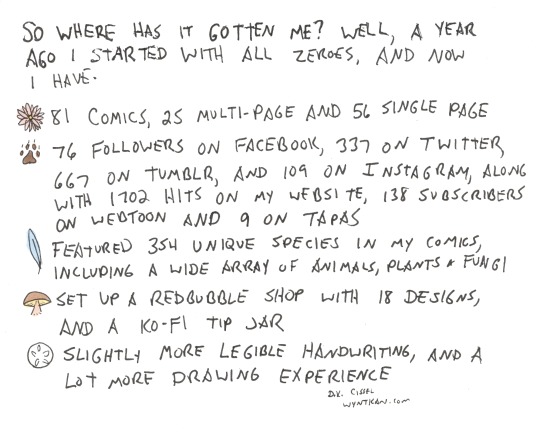 SO WHERE HAS IT GOTTEN ME? WELL, A YEAR
AGO I STARTED WITH ALL ZEROES, AND NOW
I HAVE.
81 COMICS, 25 MULTI-PAGE AND 56 SINGLE PAGE
76 FOLLOWERS ON FACEBOOK, 337 ON TWITTER,
667 ON TUMBLR, AND 109 ON INSTAGRAM, ALONG
WITH 1702 HITS ON MY WEBSITE, 138 SUBSCRIBERS
ON WEBTOON AND 9 ON TAPAS
FEATURED 354 UNIQUE SPECIES IN MY COMICS,
INCLUDING A WIDE ARRAY OF ANIMALS, PLANTS & FUNGI
SET UP A REDBUBBLE SHOP WITH 18 DESIGNS,
AND A KO-FI TIP JAR
SLIGHTLY MORE LEGIBLE HANDWRITING, AND A
LOT MORE DRAWING EXPERIENCE
D.V. CISSEL
WYNTKAN.COM